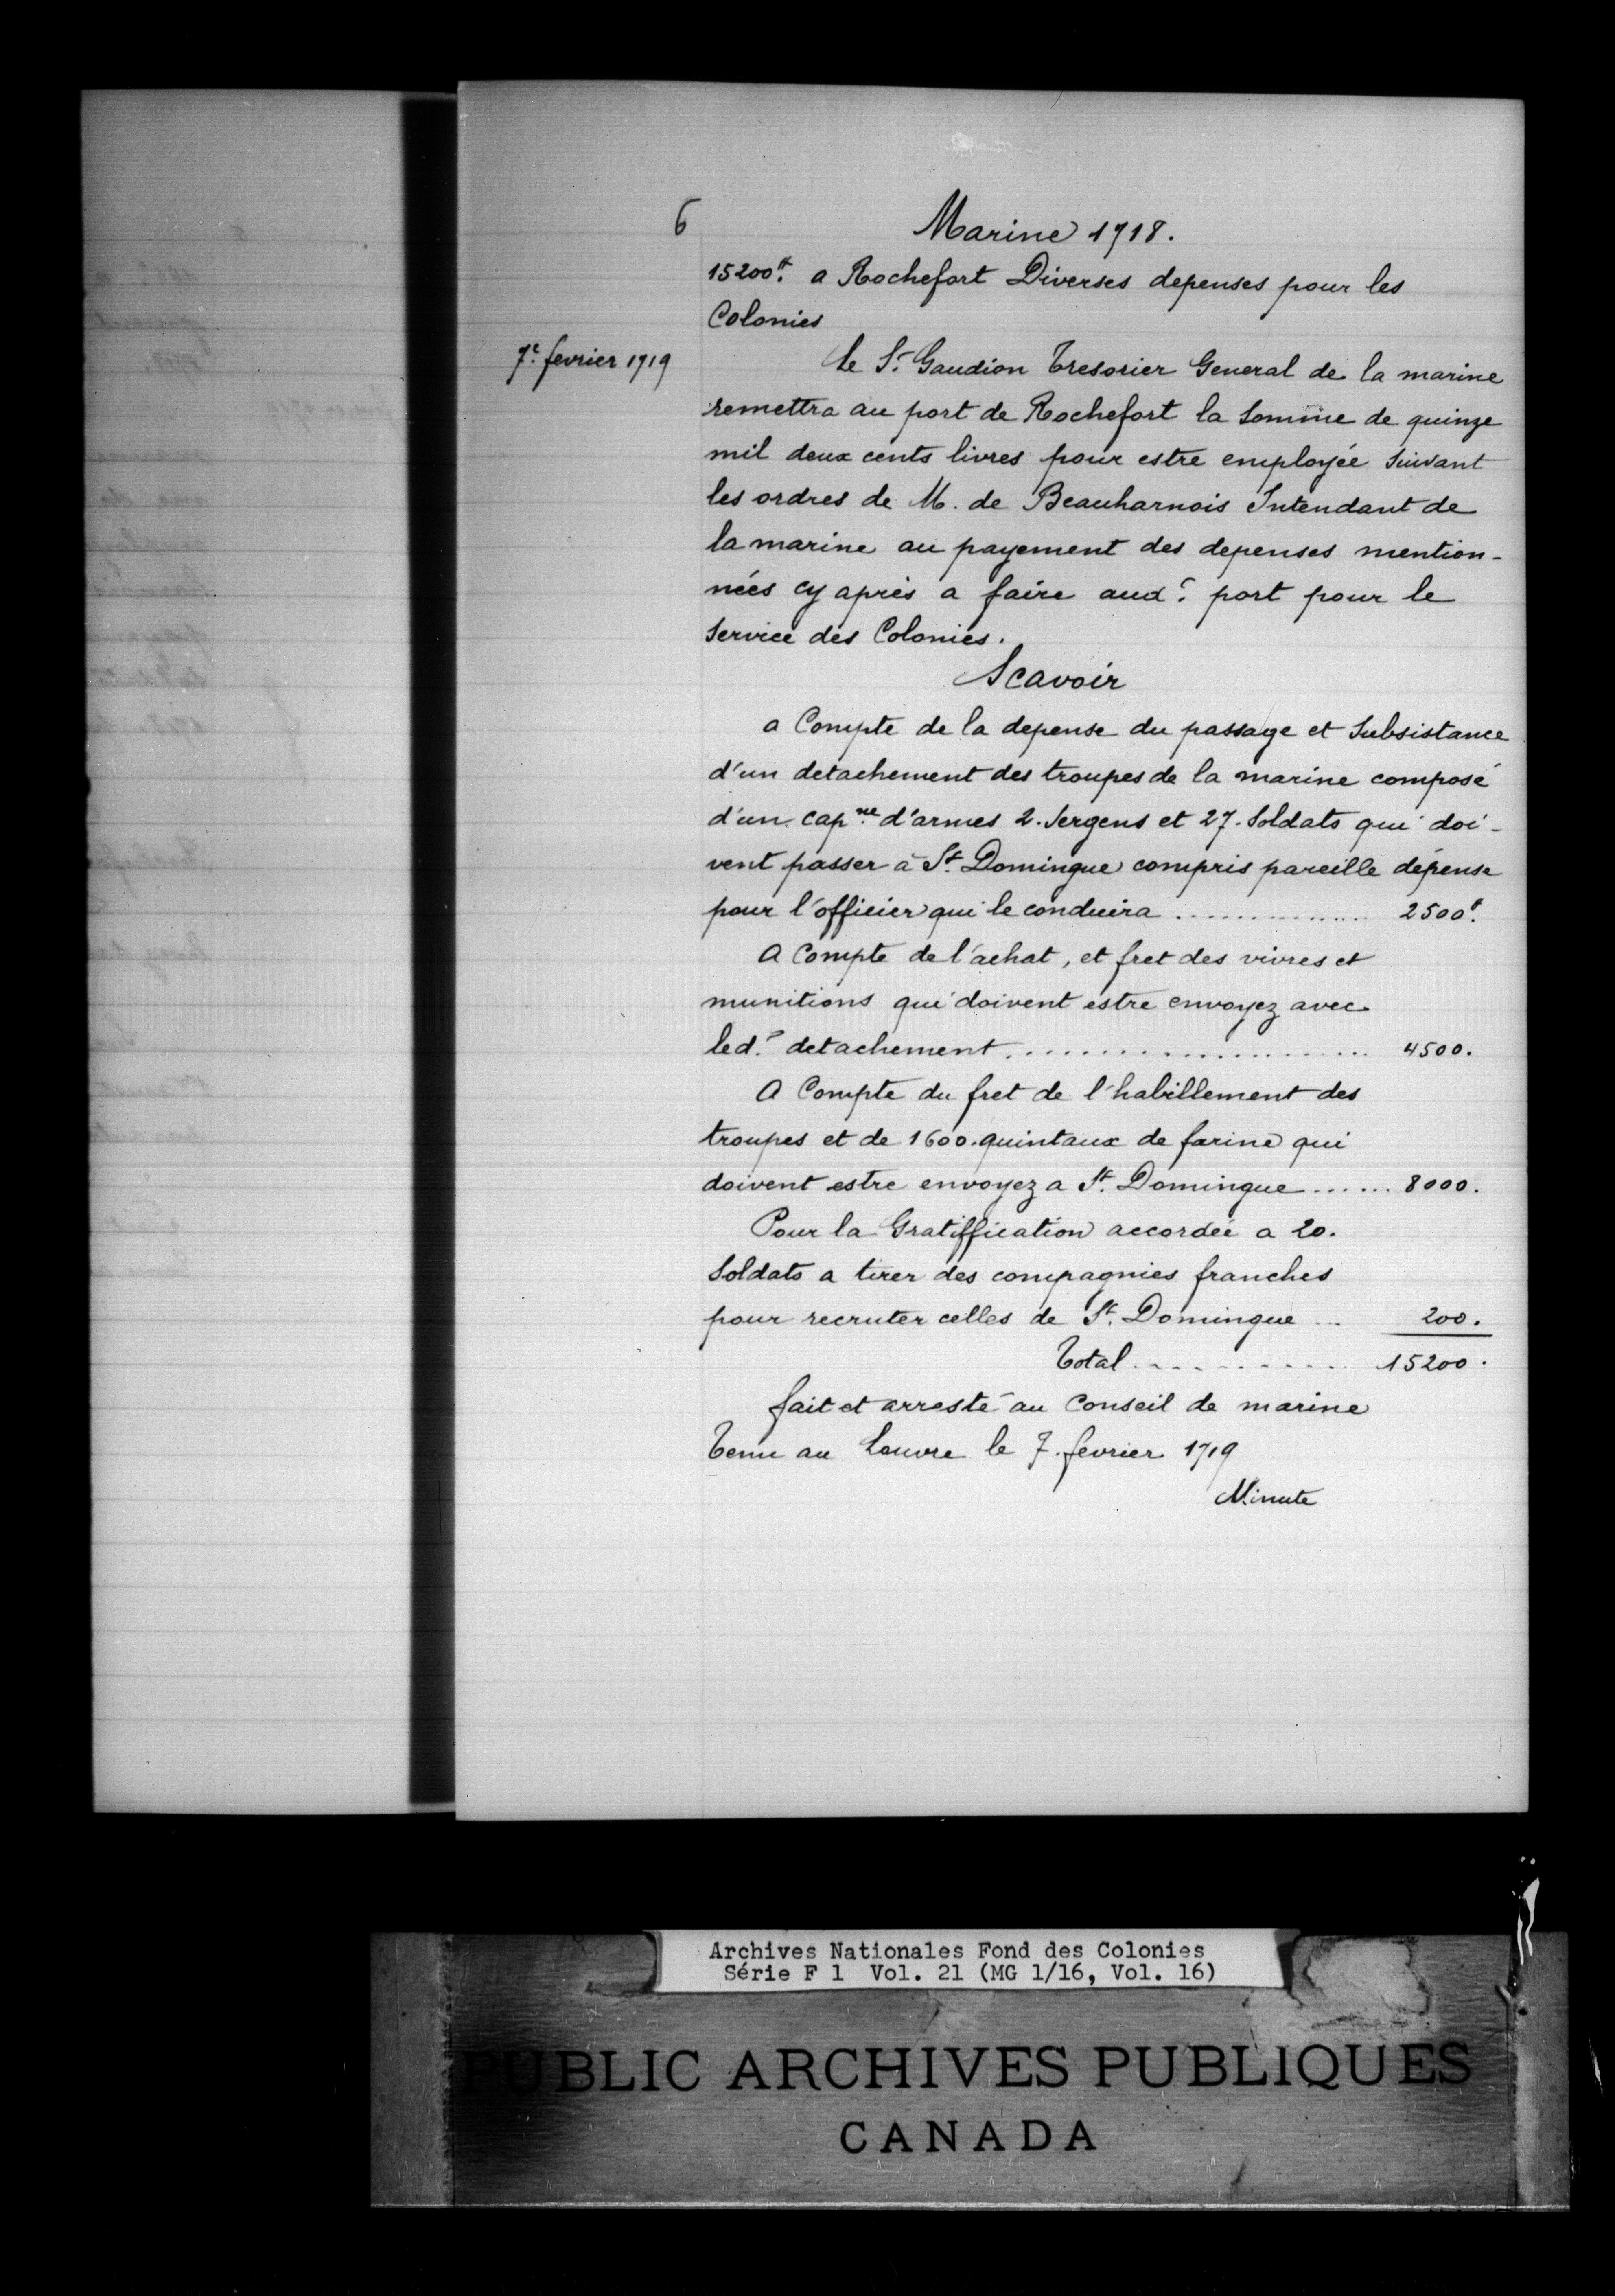 6
Marine 1718.
15200ᵗᵗ a Rochefort Diverses depenses pour les
Colonies
7ᵉ. fevrier 1719
Le Sʳ. Gaudion Tresorier General de la marine
remettra au port de Rochefort la Somme de quinze
mil deux cents livres pour estre employée Suivant
les ordres de M. de Beauharnois Intendant de
la marine au payement des depenses mention-
nées cy aprés a faire audᵗ. port pour le
Service des Colonies.
Scavoir
a Compte de la depense du passage et Subsistance
d'un detachement des troupes de la marine composé
d'un capⁿᵉ. d'armes 2. Sergens et 27. Soldats qui doi-
vent passer à Sᵗ. Domingue compris pareille dépense
pour l'officier qui le conduira .............. 2500ᵗᵗ.
A Compte de l'achat, et fret des vivres et
munitions qui doivent estre envoyez avec
ledᵗ. detachement .................... 4500.
A Compte du fret de l'habillement des
troupes et de 1600. quintaux de farine qui
doivent estre envoyez a Sᵗ. Domingue ...... 8000.
Pour la Gratiffication accordée a 20.
Soldats a tirer des compagnies franches
pour recruter celles de Sᵗ. Domingue ... 200.
Total .......... 15200.
fait et arresté au Conseil de marine
Tenu au Louvre le 7. fevrier 1719
Minute
Archives Nationales Fond des Colonies
Série F 1 Vol. 21 (MG 1/16, Vol. 16)
PUBLIC ARCHIVES PUBLIQUES
CANADA